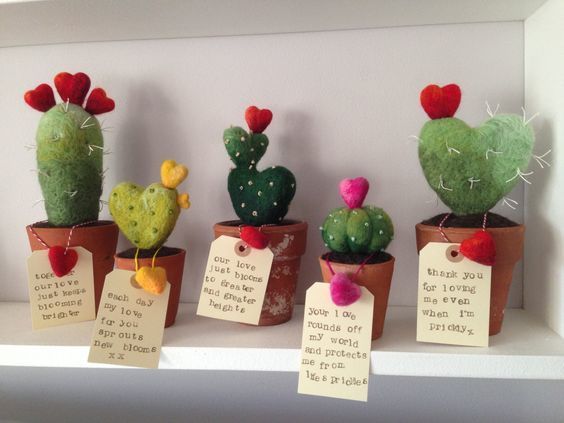 together
our love
just keeps
blooming
brighter
each day
my love
for you
sprouts
new blooms
xx
our love
just blooms
to greater
and greater
heights
your love
rounds off
my world
and protects
me from
lifes prickles
thank you
for loving
me even
when i'm
prickly x